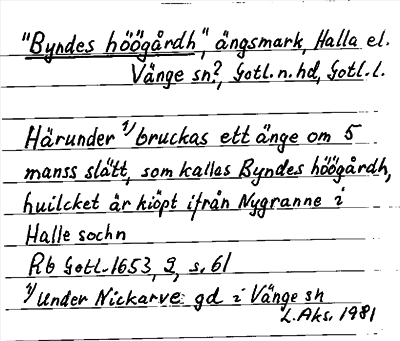 "Byndes höögårdh", ängsmark, Halla el.
Vänge sn?, Gotl. n. hd, Gotl. l.
Härunder 1/ bruckas ett änge om 5
manss slått, som kallas Byndes höögårdh,
huilcket är kiöpt ifrån Nygranne i
Halle sochn
Rb Gotl. 1653, 9, s. 61
1/ Under Nickarve gd i Vänge sn
L. Aks. 1981